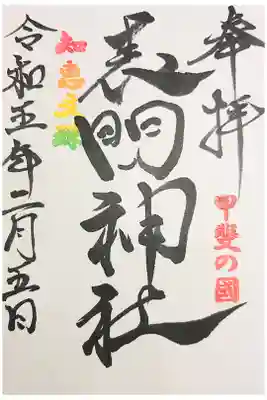 奉拝
甲斐の国
表門神社
知恵文殊
令和五年二月五日